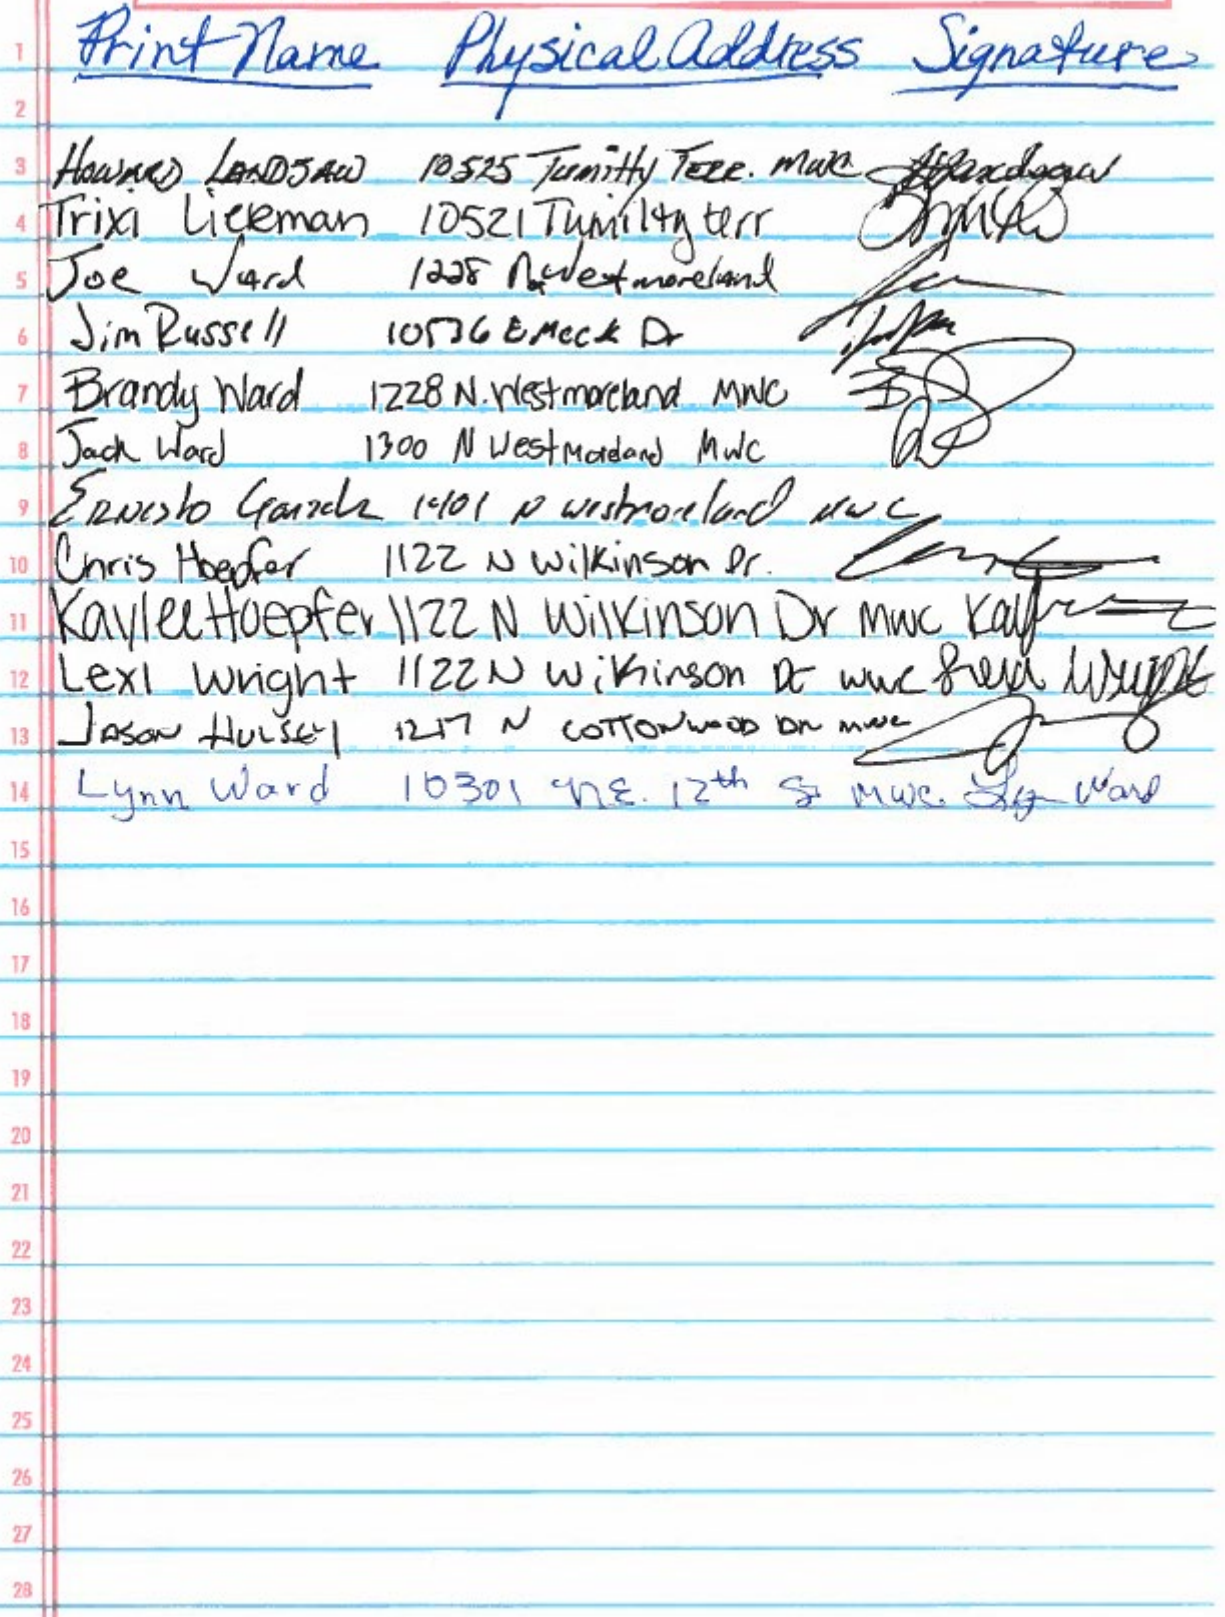 1 Print Name Physical Address Signature
2
3 Howard Landsaw 10525 Tumitty Terr. MWC
4 Trixi Liekeman 10521 Tumilty terr
5 Joe Ward 1228 N. Westmoreland
6 Jim Russell 10536 E Meck Dr
7 Brandy Ward 1228 N. Westmoreland MWC
8 Jack Ward 1300 N Westmoreland MWC
9 Ernesto 1401 N westmoreland MWC
10 Chris Hoepfer 1122 N Wilkinson Dr.
11 Kaylee Hoepfer 1122 N Wilkinson Dr MWC
12 Lexi Wright 1122 N Wilkinson Dr MWC Wright
13 Jason Hulsey 1217 N COTTONWOOD DR MWC
14 Lynn Ward 10301 N.E. 12th St MWC. Lynn Ward
15
16
17
18
19
20
21
22
23
24
25
26
27
28